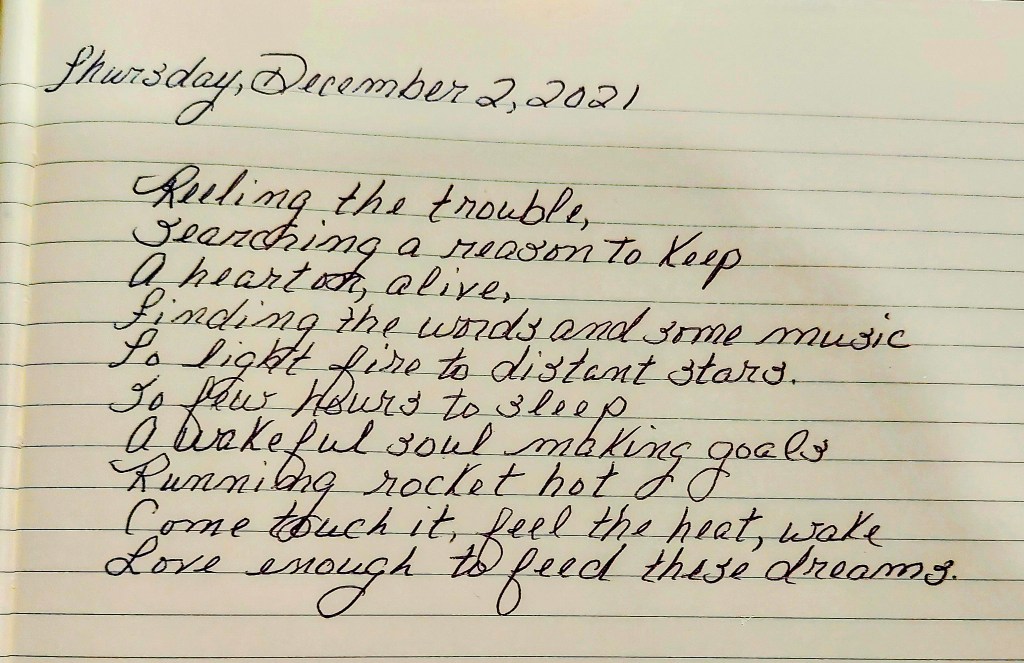 Thursday, December 2, 2021
Reeling the trouble,
Searching a reason to keep
A heart on, alive,
Finding the words and some music
To light fire to distant stars.
So few hours to sleep
A wakeful soul making goals
Running rocket hot
Come touch it, feel the heat, wake
Love enough to feed these dreams.